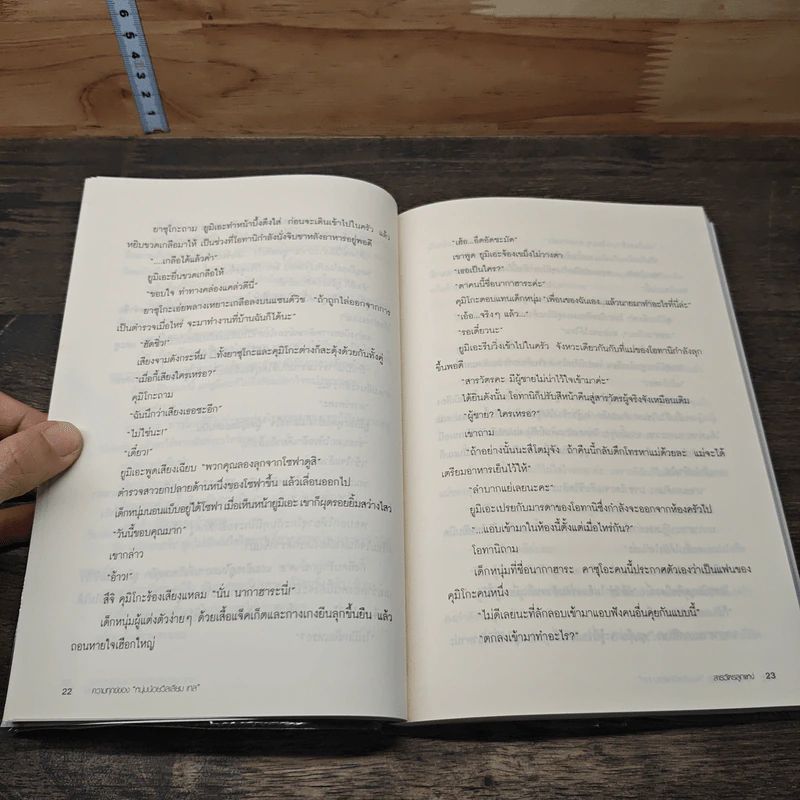 6
5
4
3
2
1
ยาซุโกะถาม ยูมิเอะทำหน้าบึ้งตึงใส่ ก่อนจะเดินเข้าไปในครัว แล้ว
หยิบขวดเกลือมาให้ เป็นช่วงที่โอทานิกำลังนั่งจิบชาหลังอาหารอยู่พอดี
"....เกลือได้แล้วค่า"
ยูมิเอะยื่นขวดเกลือให้
"ขอบใจ ท่าทางคล่องแคล่วดีนี่"
ยาซุโกะเอ่ยพลางเหยาะเกลือลงบนแซนด์วิช "ถ้าถูกไล่ออกจากการ
เป็นตำรวจเมื่อไหร่ จะมาทำงานที่บ้านฉันก็ได้นะ"
"ฮัดชิ่ว!"
เสียงจามดังกระหึ่ม ...ทั้งยาซุโกะและคุมิโกะต่างก็สะดุ้งด้วยกันทั้งคู่
"เมื่อกี้เสียงใครเหรอ?"
คุมิโกะถาม
"ฉันนึกว่าเสียงเธอซะอีก"
"ไม่ใช่นะ!"
"เดี๋ยว!"
ยูมิเอะพูดเสียงเฉียบ "พวกคุณลองลุกจากโซฟาดูสิ"
ตำรวจสาวยกปลายด้านหนึ่งของโซฟาขึ้น แล้วเลื่อนออกไป
เด็กหนุ่มนอนแบ็บอยู่ใต้โซฟา เมื่อเห็นหน้ายูมิเอะ เขาก็ผุดรอยยิ้มสว่างไสว
"วันนี้ขอบคุณมาก"
เขากล่าว
"อ้าว!"
สึจิ คุมิโกะร้องเสียงแหลม "นั่น นากาฮาระนี่!"
เด็กหนุ่มผู้แต่งตัวง่ายๆ ด้วยเสื้อแจ็คเก็ตและกางเกงยีนลุกขึ้นยืน แล้ว
ถอนหายใจเฮือกใหญ่
22 ความทุกข์ของ "หนุ่มน้อยวิลเลียม เทล"
"เฮ้อ...อึดอัดชะมัด"
เขาพูด ยูมิเอะจ้องเขม็งไม่วางตา
"เธอเป็นใคร?"
"ตาคนนี้ชื่อนากาฮาระค่ะ"
คุมิโกะตอบแทนเด็กหนุ่ม "เพื่อนของฉันเอง..แล้วนายมาทำอะไรที่นี่ล่ะ"
"เอ้อ...จริงๆ แล้ว..."
"รอเดี๋ยวนะ"
ยูมิเอะรีบวิ่งเข้าไปในครัว จังหวะเดียวกันกับที่แม่ของโอทานิกำลังลุก
ขึ้นพอดี
"สารวัตรคะ มีผู้ชายไม่น่าไว้ใจเข้ามาค่ะ"
ได้ยินดังนั้น โอทานิก็ปรับสีหน้าคืนสู่สารวัตรผู้จริงจังเหมือนเดิม
"ผู้ชาย? ใครเหรอ?"
เขาถาม
"ถ้าอย่างนั้นนะฮึโตมุจัง ถ้าคืนนี้กลับดึกโทรหาแม่ด้วยละ แม่จะได้
เตรียมอาหารเย็นไว้ให้"
"ลำบากแย่เลยนะคะ"
ยูมิเอะเปรยกับมารดาของโอทานิซึ่งกำลังจะออกจากห้องครัวไป
"...แอบเข้ามาในห้องนี้ตั้งแต่เมื่อไหร่กัน?"
โอทานิถาม
เด็กหนุ่มที่ชื่อนากาฮาระ คาซุโอะคนนี้ประกาศตัวเองว่าเป็นแฟนของ
คุมิโกะคนหนึ่ง
"ไม่ดีเลยนะที่ลักลอบเข้ามาแอบฟังคนอื่นคุยกันแบบนี้"
"ตกลงเข้ามาทำอะไร?"
สารวัตรลูกแหง่ 23